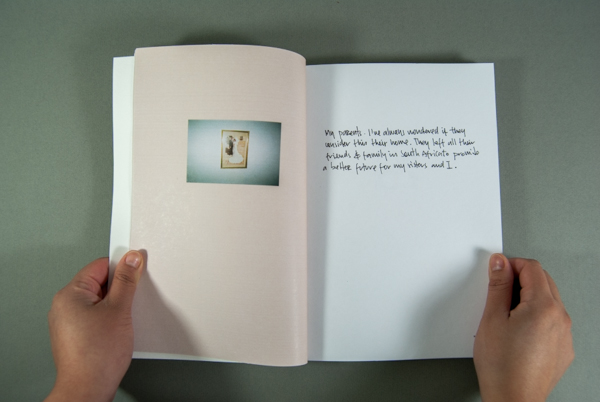 My parents. I've always wondered if they
consider this their home. They left all their
friends & family in South Africa to provide
a better future for my sisters and I.